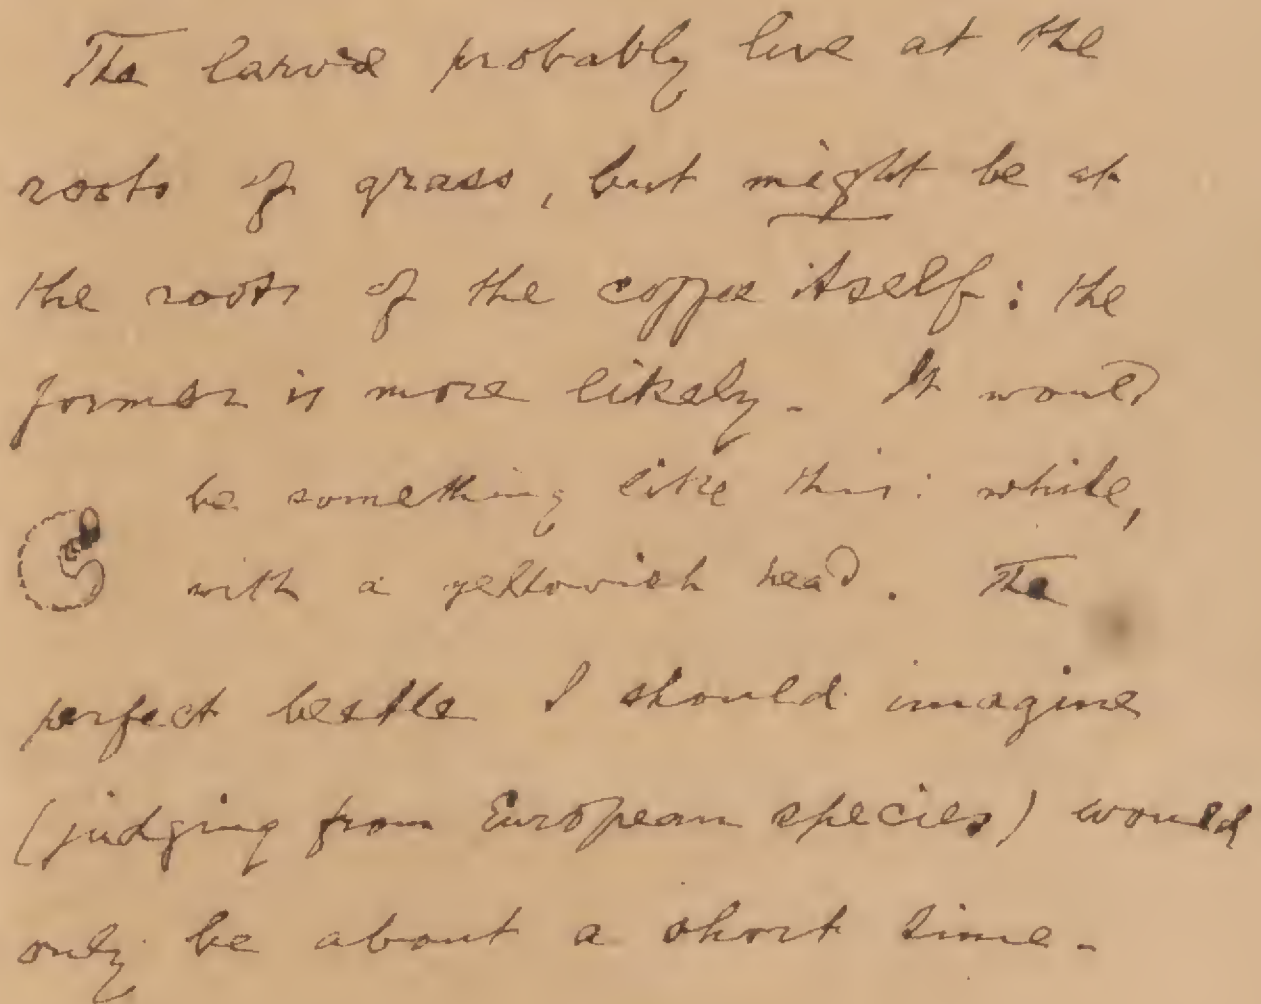 The larvae probably live at the
roots of grass, but might be at
the roots of the coffee itself: the
former is more likely. It would
be something like this: white,
with a yellowish head. The
perfect beetle I should imagine
(judging from European species) would
only be about a short time.